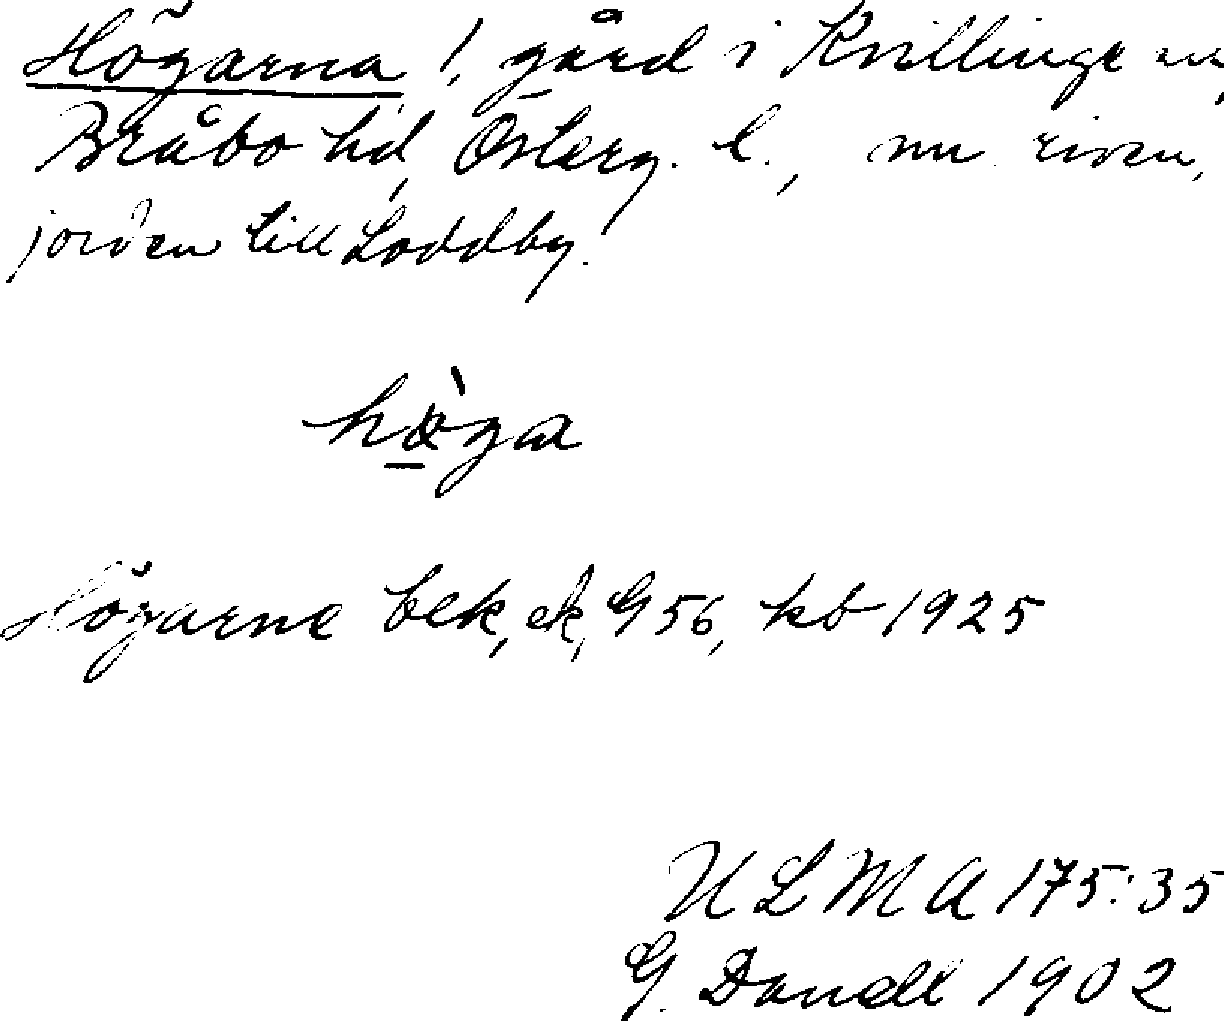 Högarna 1, gård i Kvillinge sn,
Bråbo hd, Österg. l., nu riven,
jorden till Loddby.
höga
Högarne bek, ek, G 56, kb 1925
ULMA 175:35
G. Danell 1902